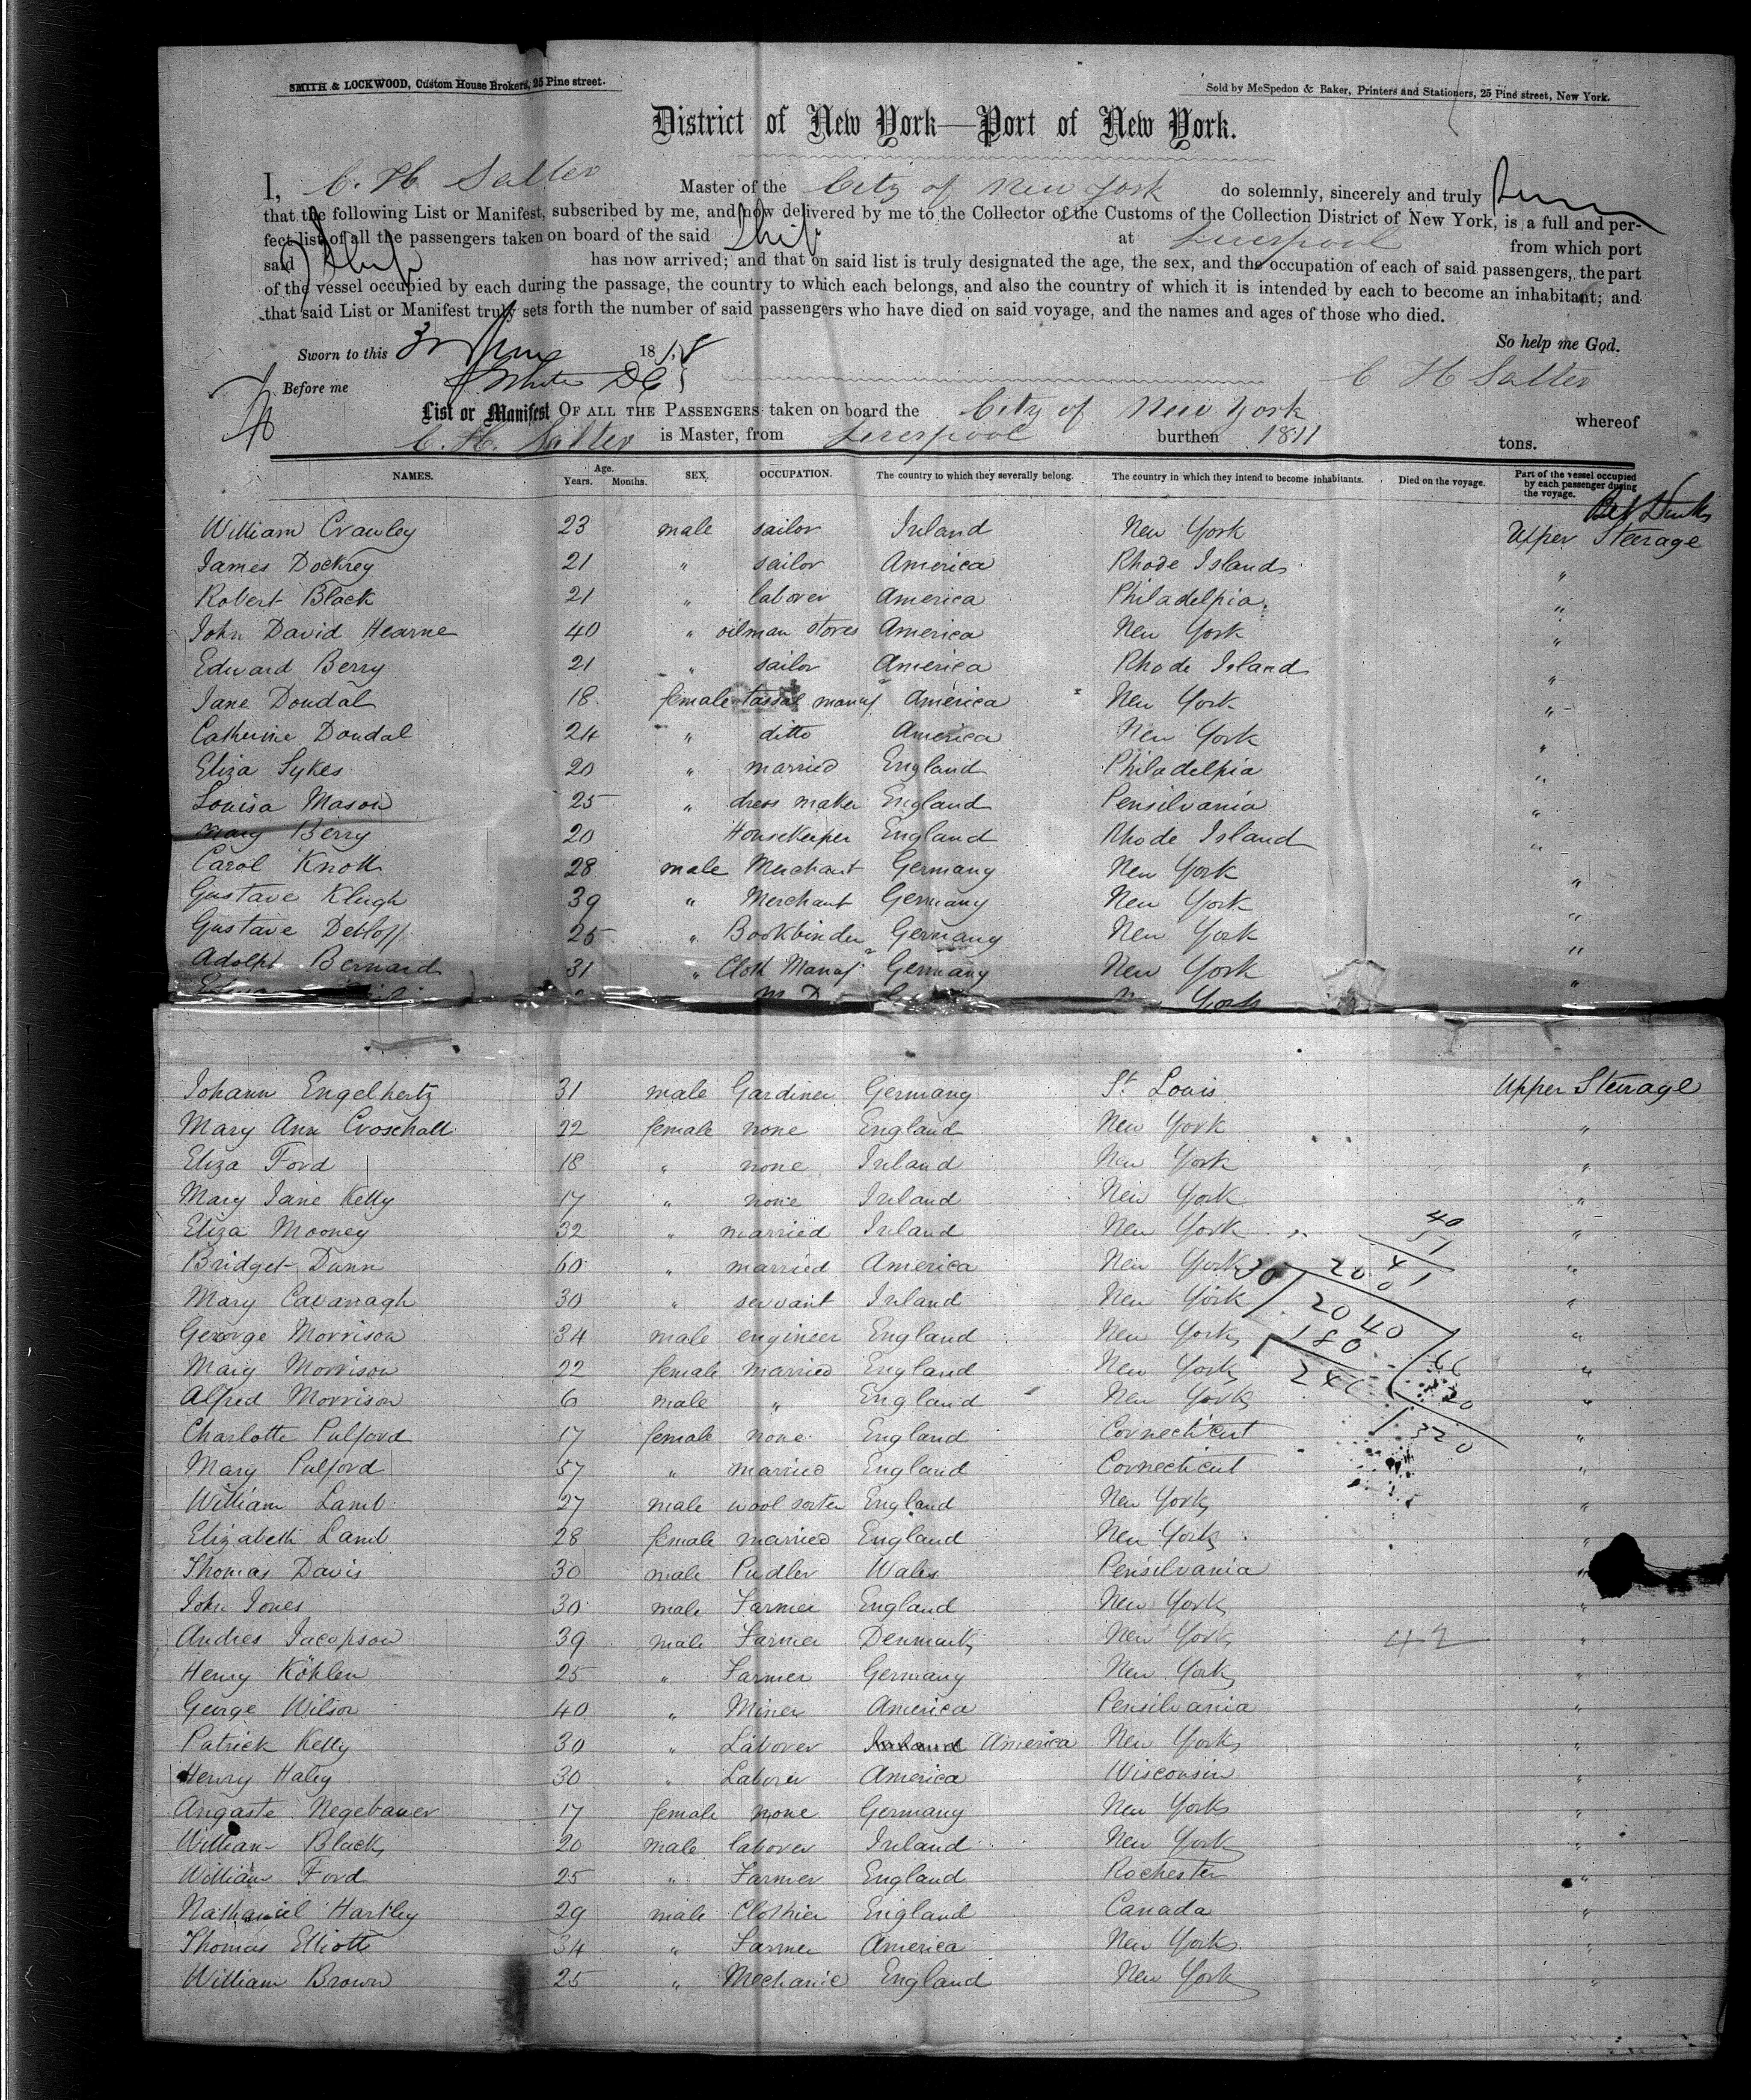 SMITH & LOCKWOOD, Custom House Brokers, 25 Pine street.
Sold by McSpedon & Baker, Printers and Stationers, 25 Pine street, New York.
District of New York—Port of New York.
I, C. H. Salter Master of the City of New York do solemnly, sincerely and truly
that the following List or Manifest, subscribed by me, and now delivered by me to the Collector of the Customs of the Collection District of New York, is a full and per-
fect list of all the passengers taken on board of the said Ship at Liverpool from which port
said Ship has now arrived; and that on said list is truly designated the age, the sex, and the occupation of each of said passengers, the part
of the vessel occupied by each during the passage, the country to which each belongs, and also the country of which it is intended by each to become an inhabitant; and
that said List or Manifest truly sets forth the number of said passengers who have died on said voyage, and the names and ages of those who died.
So help me God.
Sworn to this 3 June 18
Before me White C H Salter
List or Manifest OF ALL THE PASSENGERS taken on board the City of New York whereof
C. H. Salter is Master, from Liverpool burthen 1811 tons.
NAMES. Age. Years. Months. SEX. OCCUPATION. The country to which they severally belong. The country in which they intend to become inhabitants. Died on the voyage. Part of the vessel occupied by each passenger during the voyage.
William Crawley 23 male sailor Ireland New York Upper Steerage
James Dockrey 21 " sailor America Rhode Island "
Robert Black 21 " laborer America Philadelpia "
John David Hearne 40 " oilman stores America New York "
Edward Berry 21 " sailor America Rhode Island "
Jane Doudal 18 female tassal manuf America New York "
Catherine Doudal 24 " ditto America New York "
Eliza Sykes 20 " married England Philadelpia "
Louisa Mason 25 " dress maker England Pensilvania "
Mary Berry 20 Housekeeper England Rhode Island "
Carol Knoth 28 male Merchant Germany New York "
Gustave Klugh 39 " Merchant Germany New York "
Gustave Detloff 25 " Bookbinder Germany New York "
Adolph Bernard 31 " Cloth Manuf Germany New York "
M D New York
Johann Engelhertz 31 male Gardiner Germany St Louis Upper Steerage
Mary Ann Croschall 22 female none England New York "
Eliza Ford 18 " none Ireland New York "
Mary Jane Kelly 17 " none Ireland New York "
Eliza Mooney 32 " married Ireland New York "
Bridget Dunn 60 " married America New York "
Mary Cavanagh 30 " servant Ireland New York "
George Morrison 34 male engineer England New York "
Mary Morrison 22 female married England New York "
Alfred Morrison 6 male " England New York "
Charlotte Pulford 17 female none England Connecticut "
Mary Pulford 57 " married England Connecticut "
William Lamb 27 male wool sorter England New York "
Elizabeth Lamb 28 female married England New York "
Thomas Davis 30 male Pudler Wales Pensilvania "
John Jones 30 male Farmer England New York "
Andres Jacopson 39 male Farmer Denmark New York "
Henry Köhler 25 " Farmer Germany New York "
George Wilson 40 " Miner America Pensilvania "
Patrick Kelly 30 " Laborer Ireland America New York "
Henry Haley 30 " Laborer America Wisconsin "
Augaste Negebauer 17 female none Germany New York "
William Black 20 male laborer Ireland New York "
William Ford 25 " Farmer England Rochester "
Nathaniel Hartley 29 male Clothier England Canada "
Thomas Elliott 34 " Farmer America New York "
William Brown 25 " Mechanic England New York "